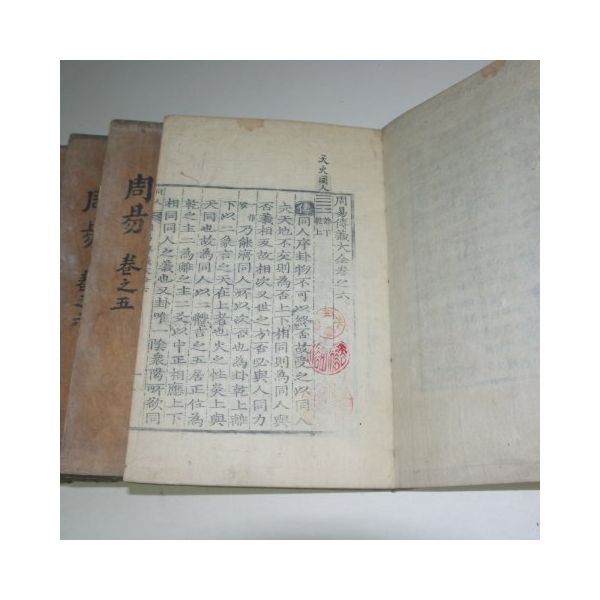 周易傳義大全卷之六
天火同人 離下 乾上
傳同人序卦物不可以終否故受之以同人
夫天地不交則為否上下相同則為同人與
否義相反故相次又世之方否必與人同力
乃能濟同人所以次否也為卦乾上離
下以二象言之天在上者也火之性炎上與
天同也故為同人以二爻言之五居正位為
乾之主二為離之主二爻以中正相應上下
相同同人之義也又卦唯一陰衆陽所欲同
周易 卷之五
周易 卷之